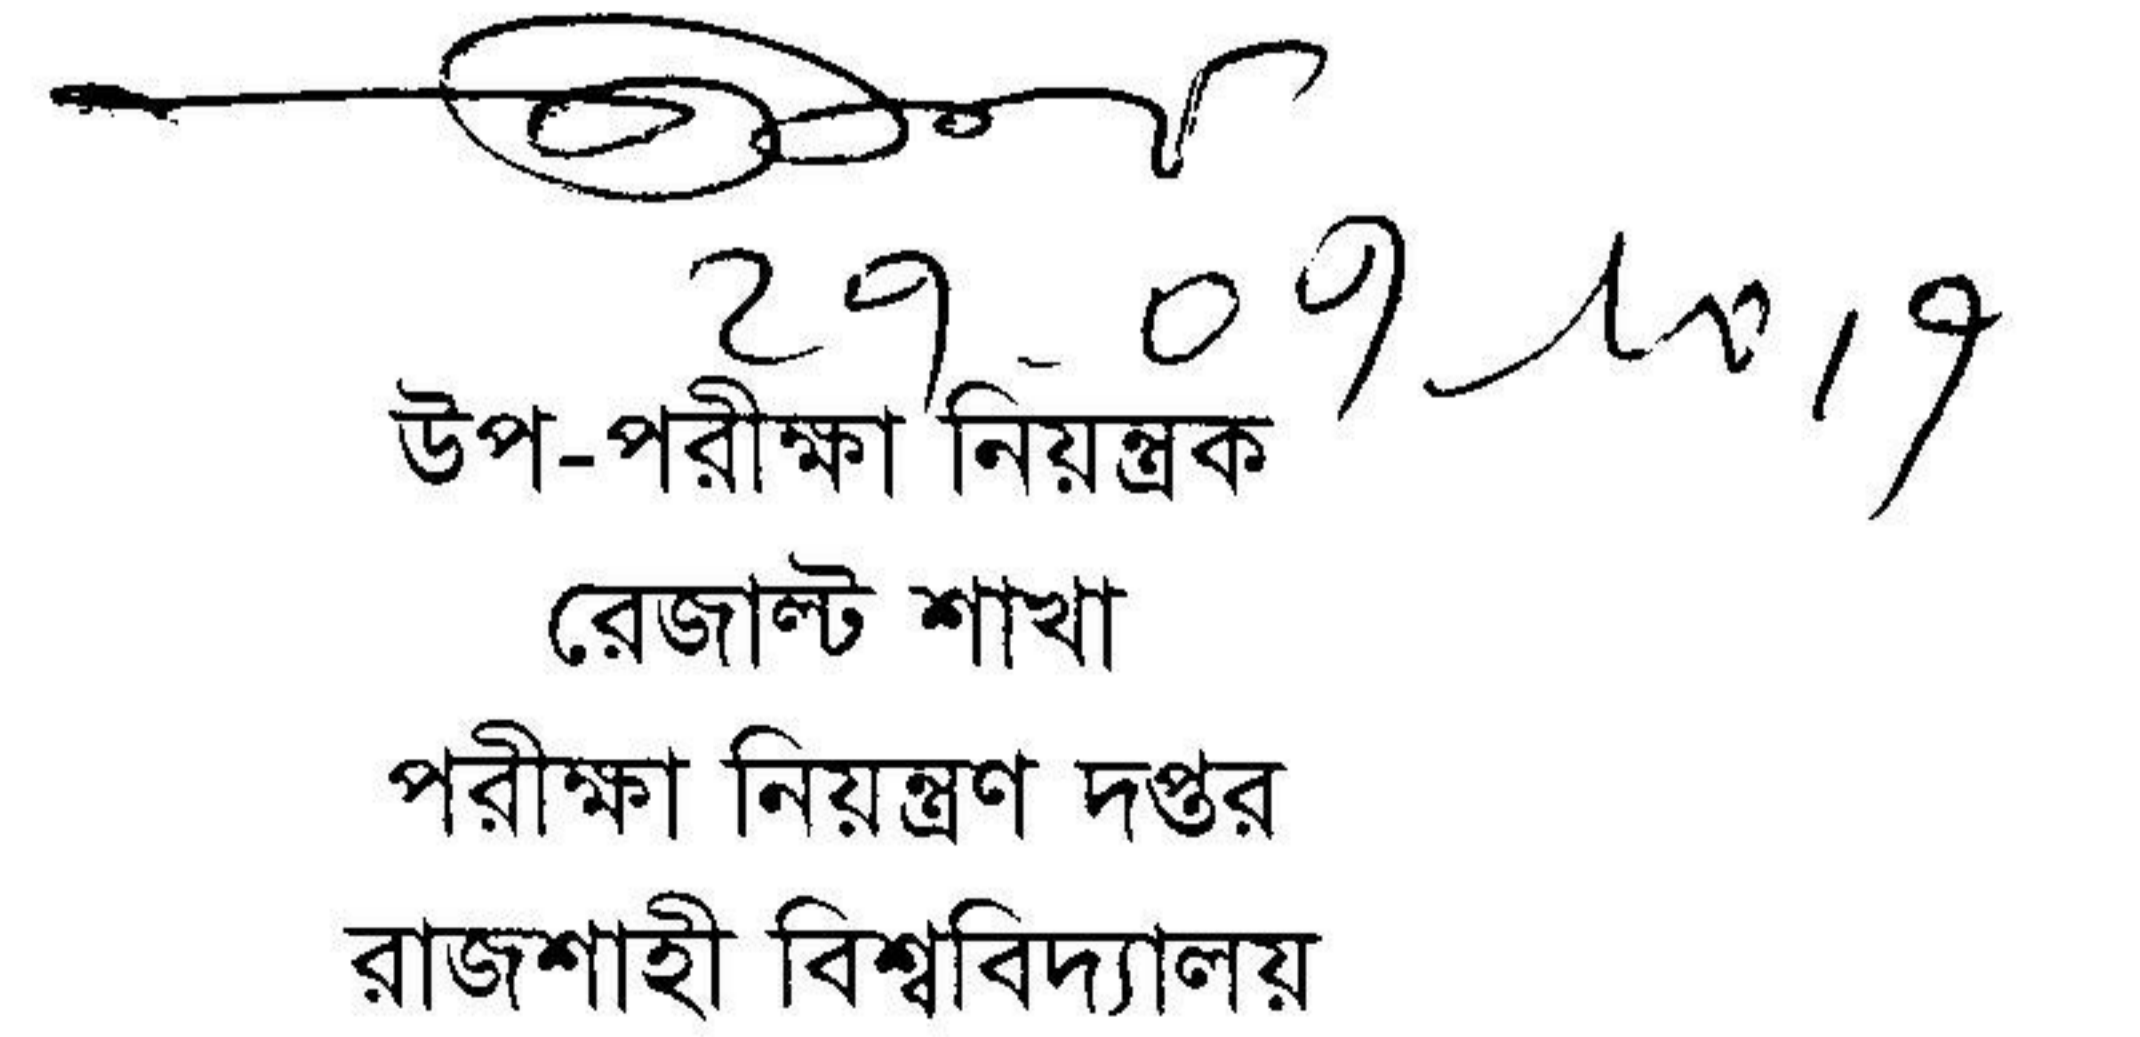 ২৭-০৭-২০১৭
উপ-পরীক্ষা নিয়ন্ত্রক
রেজাল্ট শাখা
পরীক্ষা নিয়ন্ত্রণ দপ্তর
রাজশাহী বিশ্ববিদ্যালয়